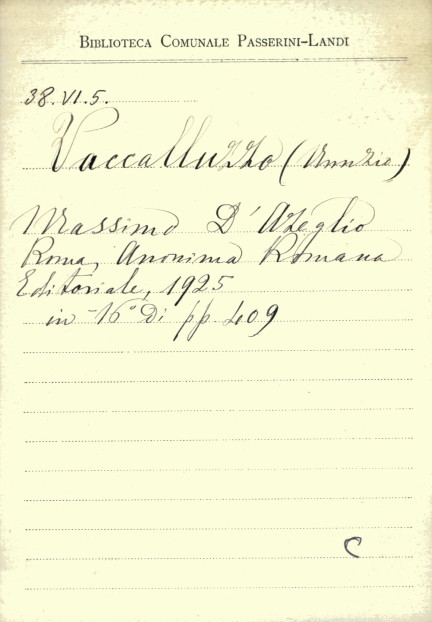 BIBLIOTECA COMUNALE PASSERINI-LANDI
38.VI.5.
Vaccalluzzo (Nunzio)
Massimo D'Azeglio
Roma, Anonima Romana
Editoriale, 1925
in-16° di pp 409
C